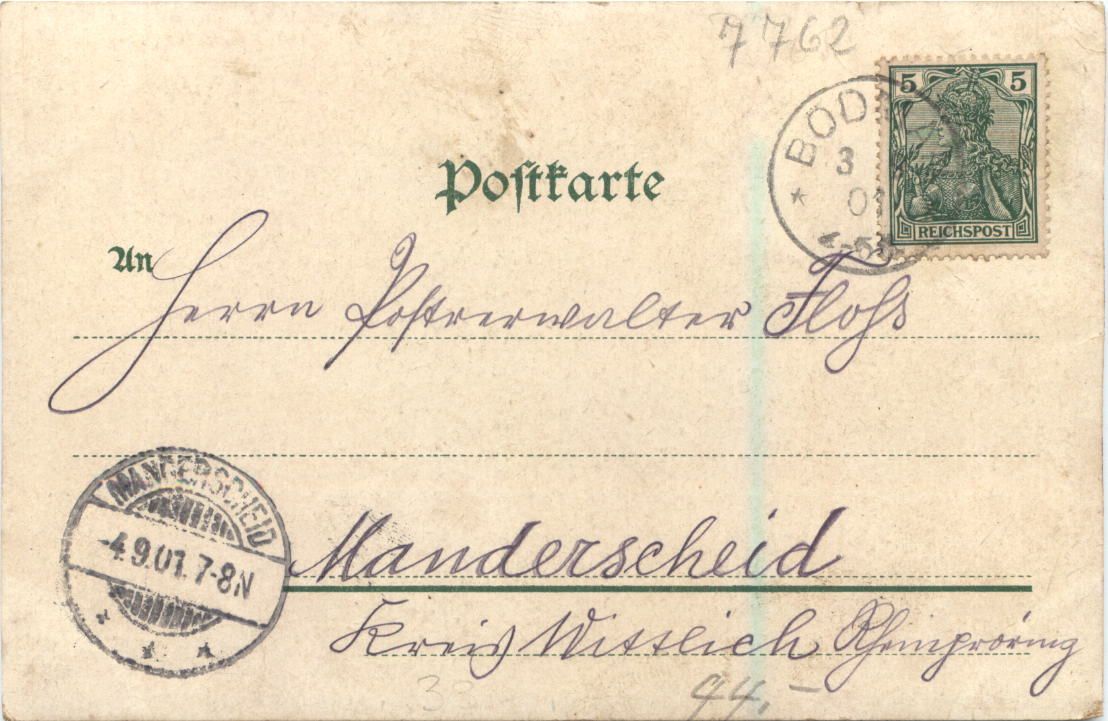 7762
5 5
BOD
3
01
4-5N
REICHSPOST
Postkarte
An
Herrn Postverwalter Flohs
MANDERSCHEID
-4.9.01.7-8N
Manderscheid
Kreis Wittlich Rheinprovinz
38
94,-